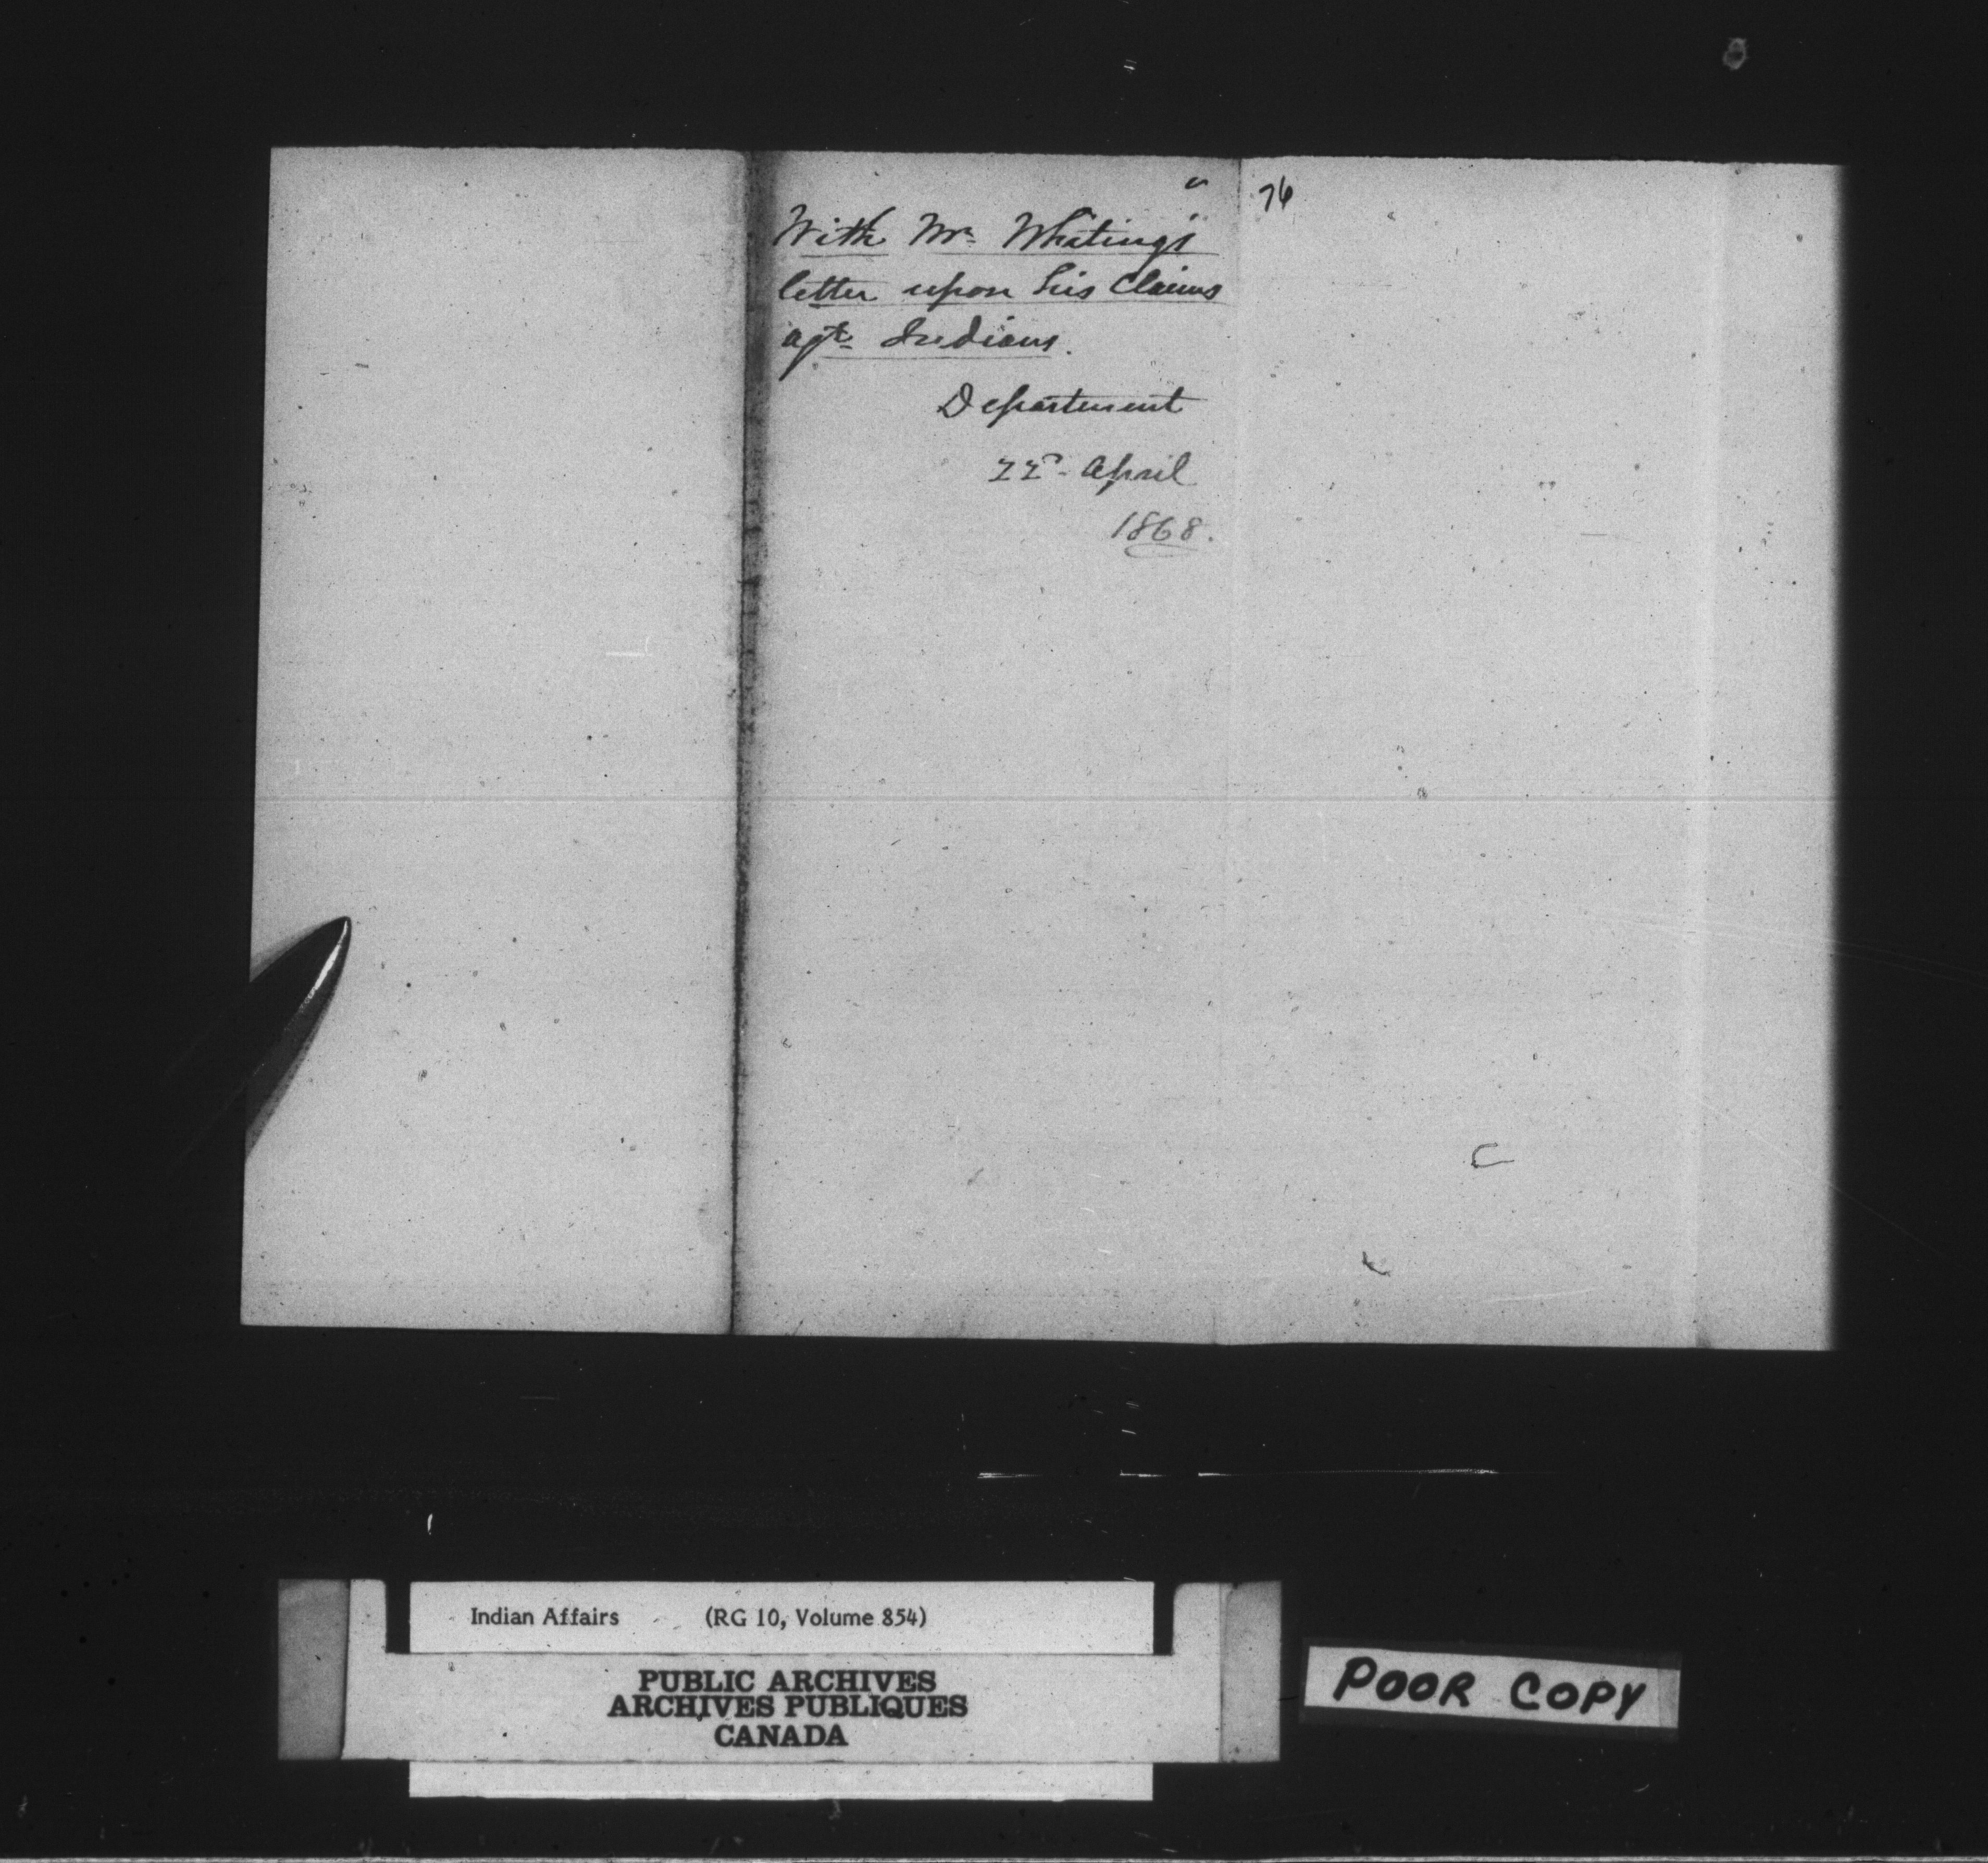 76
With Mr Whiting's
letter upon his Claims
agt Indians.
Department
22d April
1868.
Indian Affairs (RG 10, Volume 854)
PUBLIC ARCHIVES
ARCHIVES PUBLIQUES
CANADA
POOR COPY